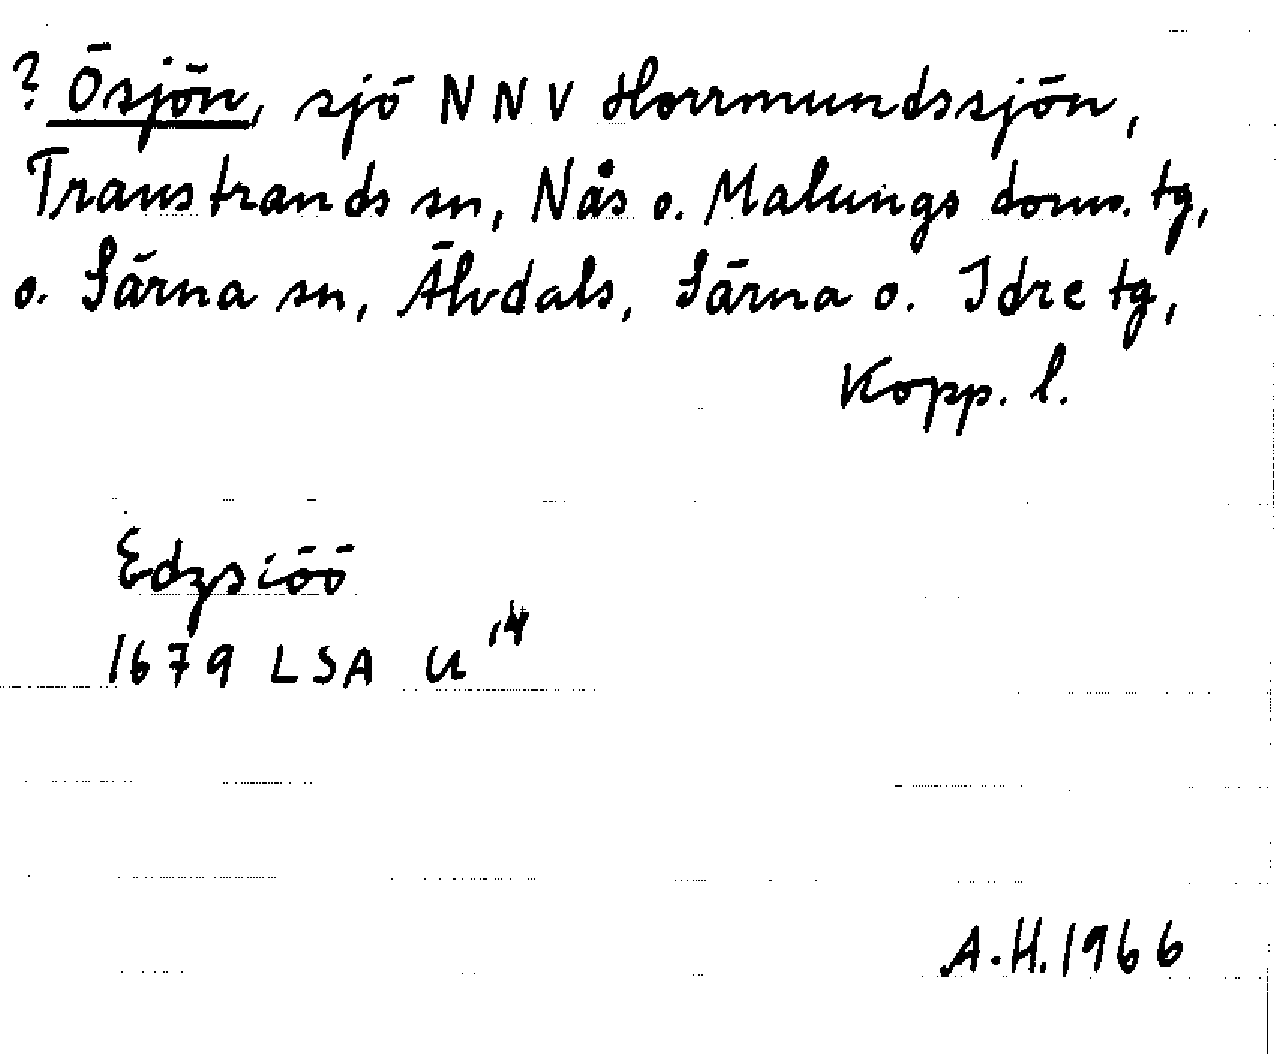 ? Ösjön, sjö NNV Horrmundssjön,
Transtrands sn, Nås o. Malungs doms. tg,
o. Särna sn, Älvdals, Särna o. Idre tg,
Kopp. l.
Edzsiöö
1679 LSA U 14
A.H. 1966